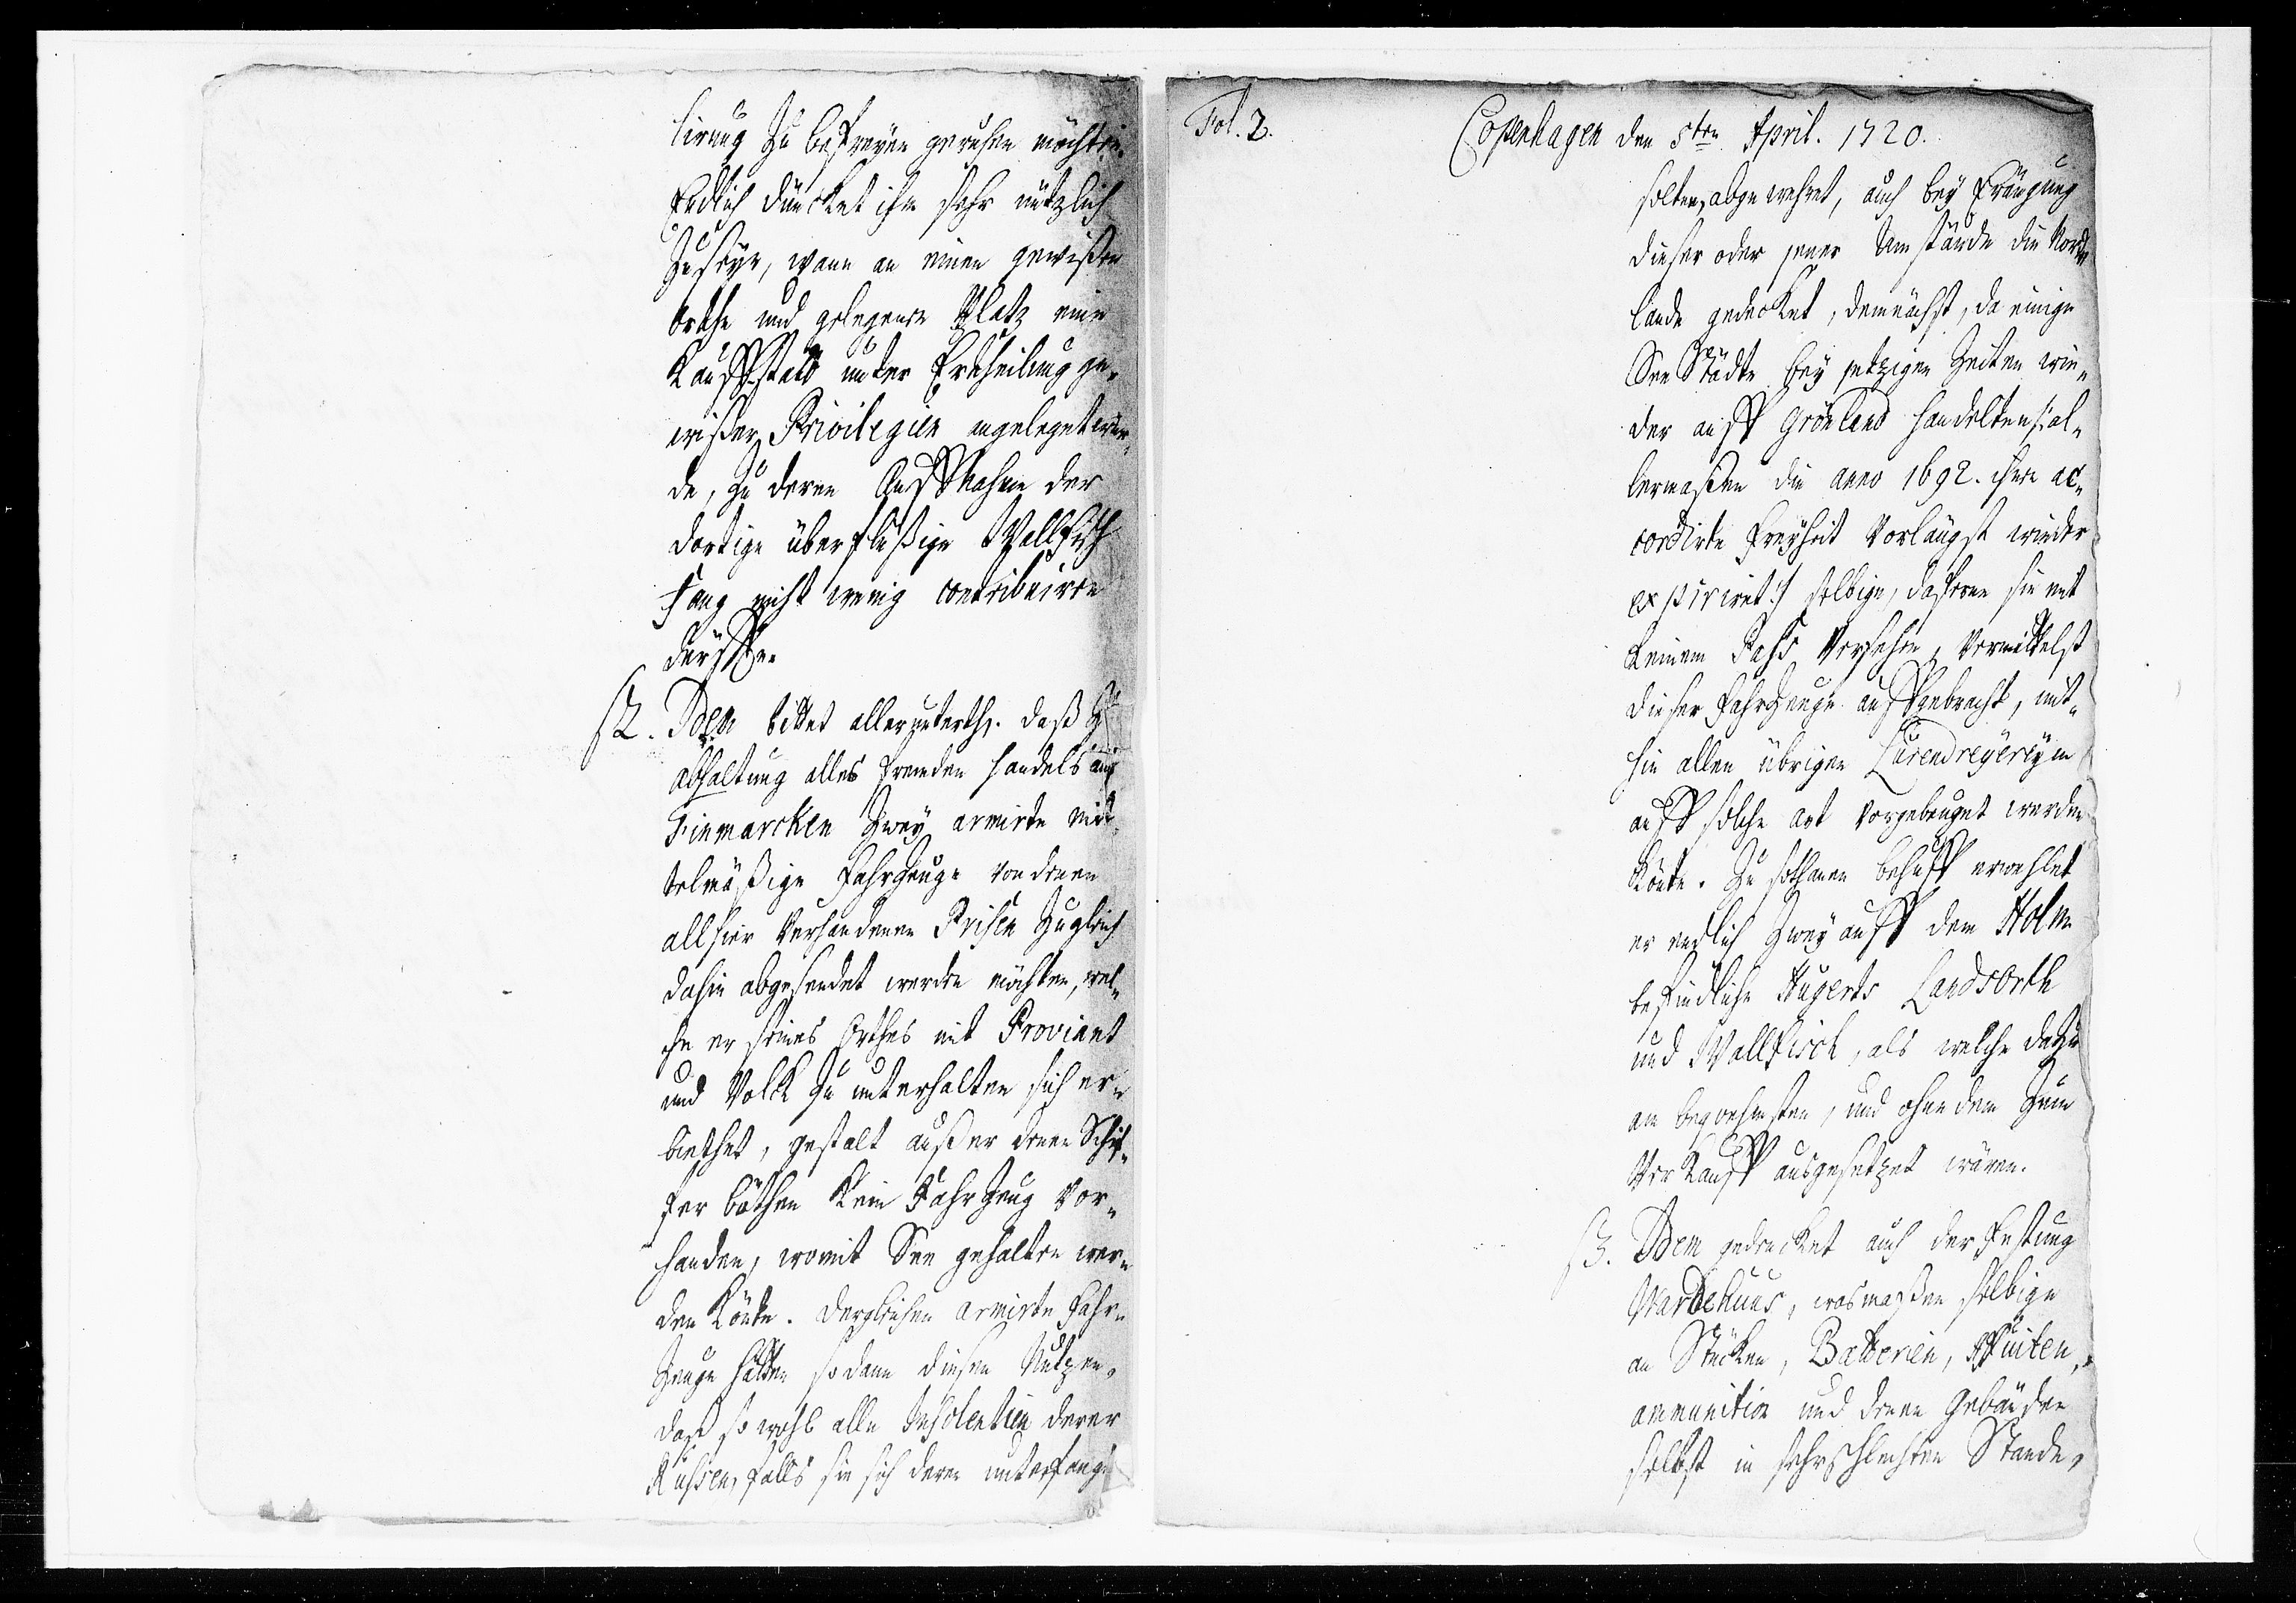 lirung zu befreyen geruhen möchten.
Endlich düncket ihm sehr nützlich
zu seyn, wann an einen gewißen
Orthe und gelegenen Platz eine
Kauffstadt unter Ertheilung ge-
wißer Privilegien angeleget wür-
de, zu deren Auffnahme der
dortige überflüßige Wallfisch
Fang nicht wenig contribuiren
dürffte.
2. Idem bittet allerunterth. daß zu
abhaltung alles frembden Handels auf
Finmarcken zwey armirte mit-
telmäßige Fahrzeuge von denen
allhier verhandenen Prisen zugleich
dahin abgesendet werden möchten, wel-
che er seines Orthes mit Proviant
und Volck zu unterhalten sich er-
biethet, gestalt außer denen Schif-
fer böthen kein Fahrzeug vor-
handen, womit See gehalten wer-
den könte. Dergleichen armirte Fahr-
zeuge hätten sodann diesen Nutzen,
daß so wohl alle Insolentien derer
Russen, falls sie sich deren unterfangen
Fol. 2.
Copenhagen den 5ten April. 1720.
solten, abgewehret, auch bey Eräugung
dieser oder jener Umstände die Nord-
lande gedecket, demnächst, da einige
See Städte bey jetzigen Zeiten wie-
der auff Grönland handelten /: al-
lermaßen die anno 1692. ihnen ac-
cordirte Freyheit vorlängst wieder
expiriret :/ selbige, dafern sie mit
keinem Pass versehen, vermittelst
dieser Fahrzeuge auffgebracht, mit-
hin allen übrigen Lurendreyereyen
auff solche art vorgebeuget werden
könte. Zu sothanen behuff erwehlet
er endlich zwey auff dem Holm
befindliche Hugerts Landsorth
und Wallfisch, als welche dazu
am beqvehmsten, und ohne dem zum
Verkauff ausgesetzet wären.
3. Idem gedencket auch der Festung
Wardehuus, wasmaßen selbige
an Stücken, Batterien, Affuiten,
ammunition und denen Gebäuden
selbst in sehr schlechten Stande,